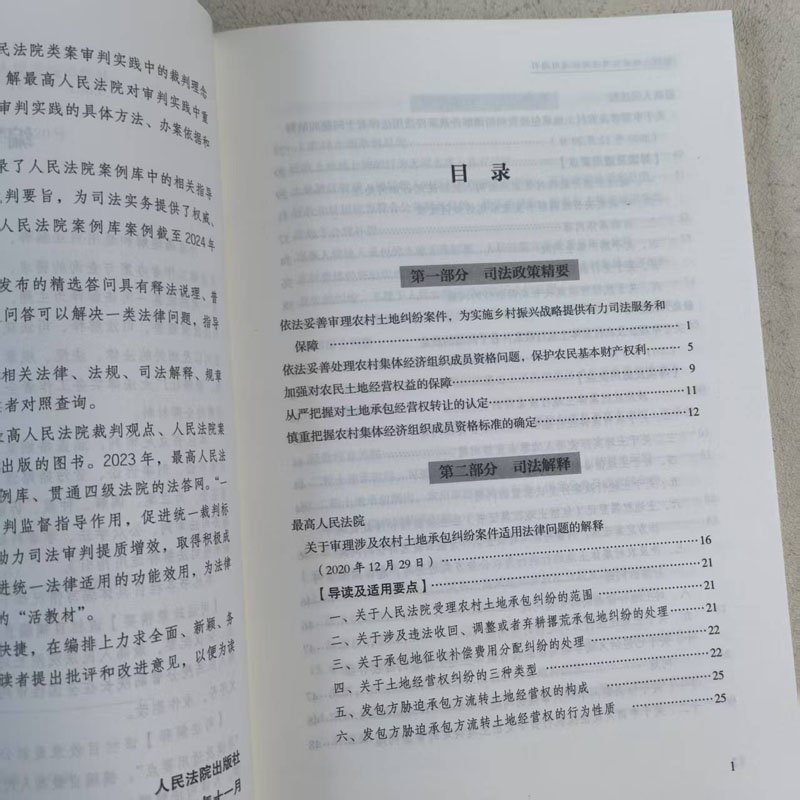 民法院类案审判实践中的裁判理念
解最高人民法院对审判实践中重
审判实践的具体方法、办案依据和
录了人民法院案例库中的相关指导
判要旨，为司法实务提供了权威、
人民法院案例库案例截至2024年
发布的精选答问具有释法说理、普
问答可以解决一类法律问题，指导
相关法律、法规、司法解释、规章
者对照查询。
高人民法院裁判观点、人民法院案
出版的图书。2023年，最高人民法
例库、贯通四级法院的法答网。“一
判监督指导作用，促进统一裁判标
助力司法审判提质增效，取得积极成
进统一法律适用的功能效用，为法律
的“活教材”。
快捷，在编排上力求全面、新颖、务
读者提出批评和改进意见，以便为读
人民法院出版社
年十一月
目 录
第一部分 司法政策精要
依法妥善审理农村土地纠纷案件，为实施乡村振兴战略提供有力司法服务和
保障……1
依法妥善处理农村集体经济组织成员资格问题，保护农民基本财产权利……5
加强对农民土地经营权益的保障……9
从严把握对土地承包经营权转让的认定……11
慎重把握农村集体经济组织成员资格标准的确定……12
第二部分 司法解释
最高人民法院
关于审理涉及农村土地承包纠纷案件适用法律问题的解释
（2020年12月29日）……16
【导读及适用要点】……21
一、关于人民法院受理农村土地承包纠纷的范围……21
二、关于涉及违法收回、调整或者弃耕撂荒承包地纠纷的处理……21
三、关于承包地征收补偿费用分配纠纷的处理……22
四、关于土地经营权纠纷的三种类型……22
五、发包方胁迫承包方流转土地经营权的构成……25
六、发包方胁迫承包方流转土地经营权的行为性质……25
1